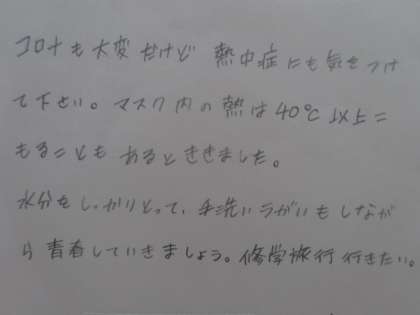 コロナも大変だけど 熱中症にも気をつけ
て下さい。マスク内の熱は40℃以上こ
もることもあるとききました。
水分をしっかりとって、手洗いうがいもしなが
ら青春していきましょう。修学旅行行きたい。